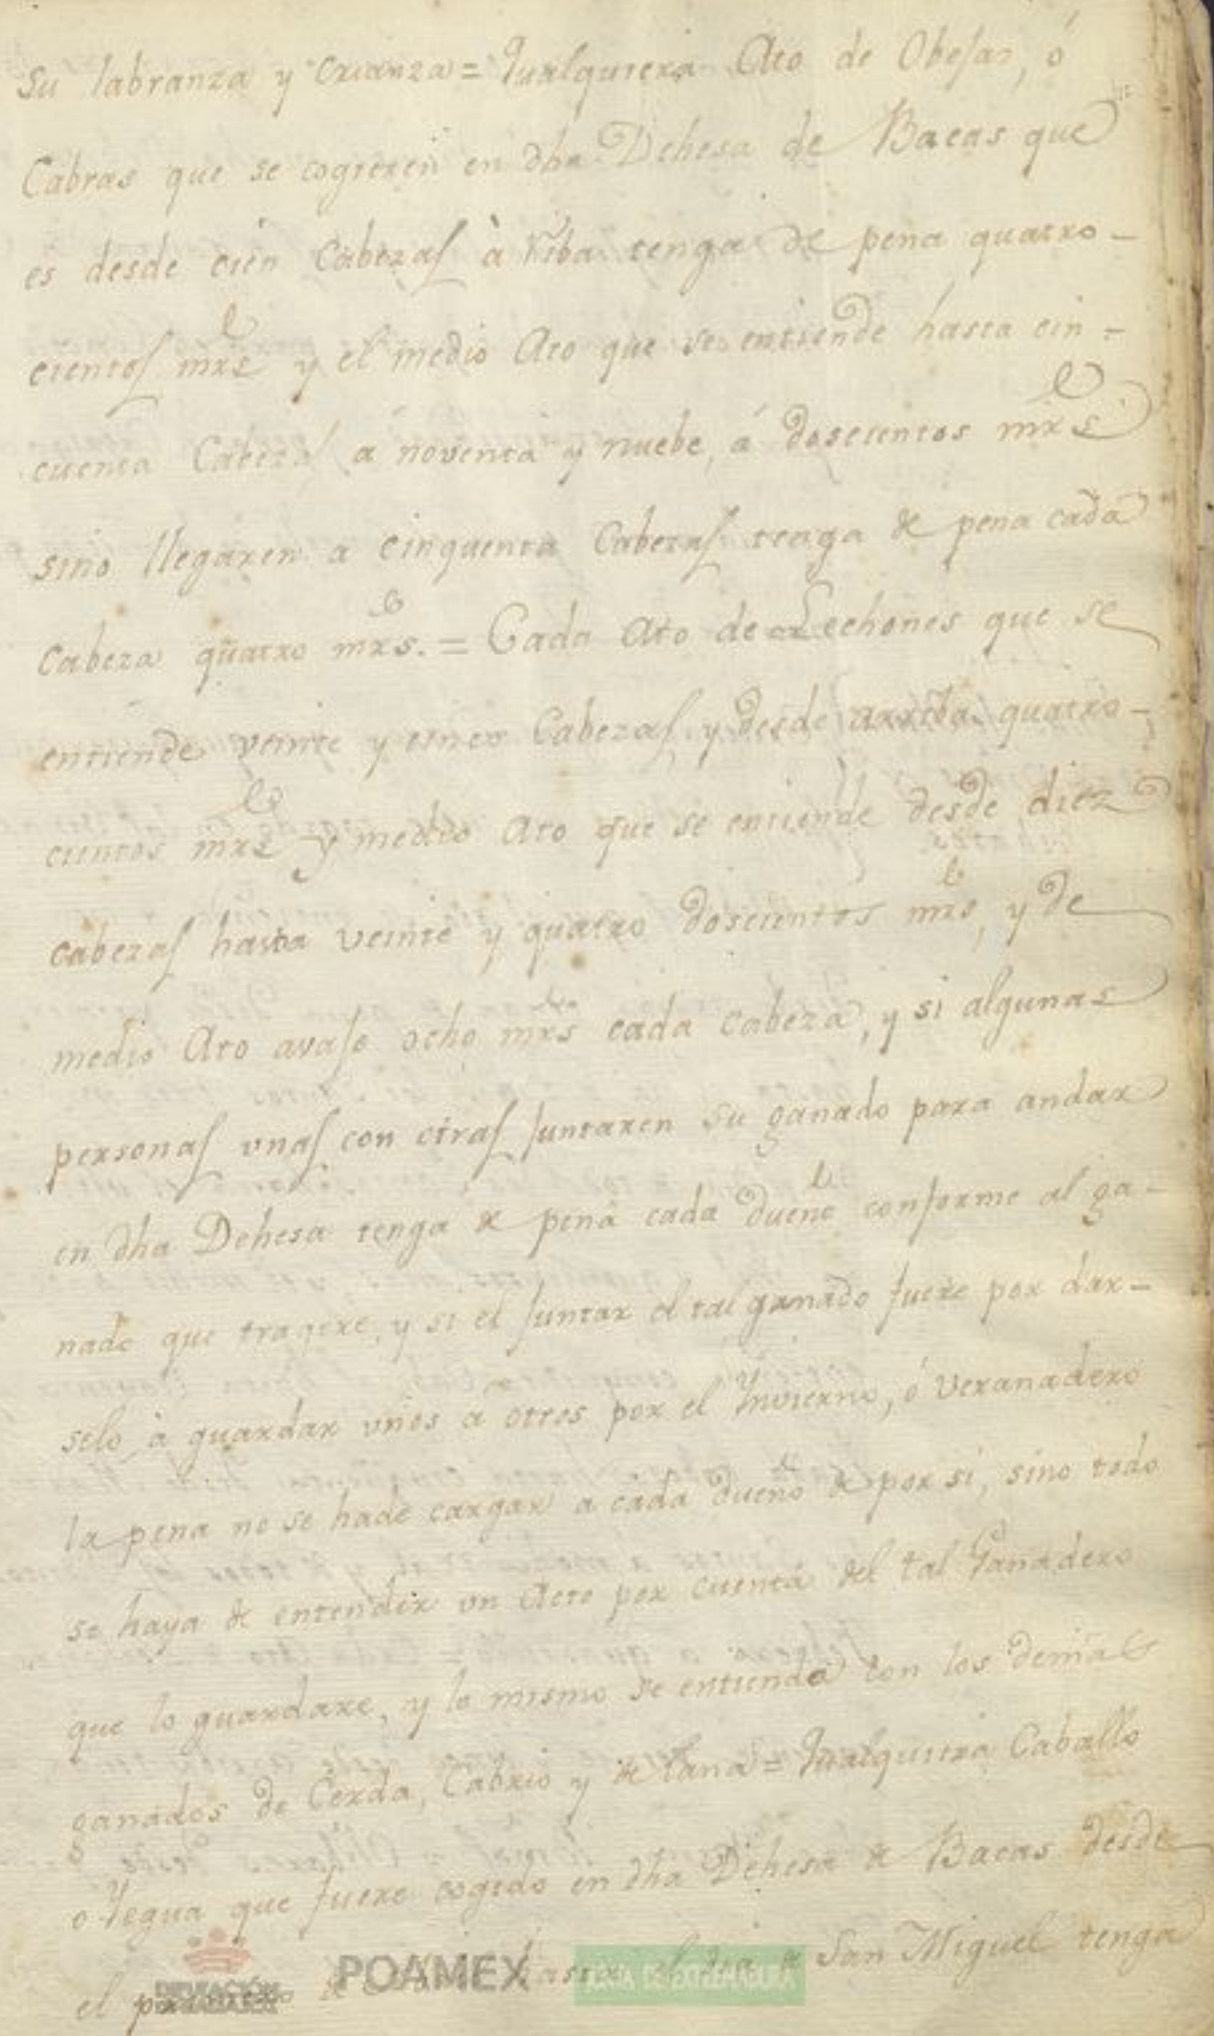 su labranza y crianza = Qualquiera Ato de Obejas, ó
Cabras que se cogieren en dha Dehesa de Bacas que
es desde cien Cabezas à Riba tenga de pena quatro-
cientos mrs y el medio Ato que se entiende hasta cin-
cuenta Cabezas a noventa y nuebe, á doscientos mrs
sino llegaren a cinquenta Cabezas tenga de pena cada
Cabeza quatro mrs. = Cada Ato de Lechones que se
entiende veinte y cinco Cabezas y desde arriba quatro-
cientos mrs y medio Ato que se entiende desde diez
cabezas hasta veinte y quatro doscientos mrs, y de
medio Ato avajo ocho mrs cada cabeza, y si algunas
personas unas con otras Juntaren su ganado para andar
en dha Dehesa tenga de pena cada dueño conforme al ga-
nado que tragere, y si el Juntar el tal ganado fuere por dar-
selo à guardar unos a otros por el Invierno, ó Veranadero
la pena no se hade cargar a cada dueño de por si, sino todo
se haya de entender un Acto por cuenta del tal Ganadero
que lo guardare, y lo mismo se entienda con los demas
ganados de Cerda, Cabrio y de Lana = Qualquiera Caballo
o Yegua que fuere cogido en dha Dehesa de Bacas desde
el primero de hasta el dia de San Miguel tenga
DIPUTACIÓN DE BADAJOZ
POAMEX
JUNTA DE EXTREMADURA